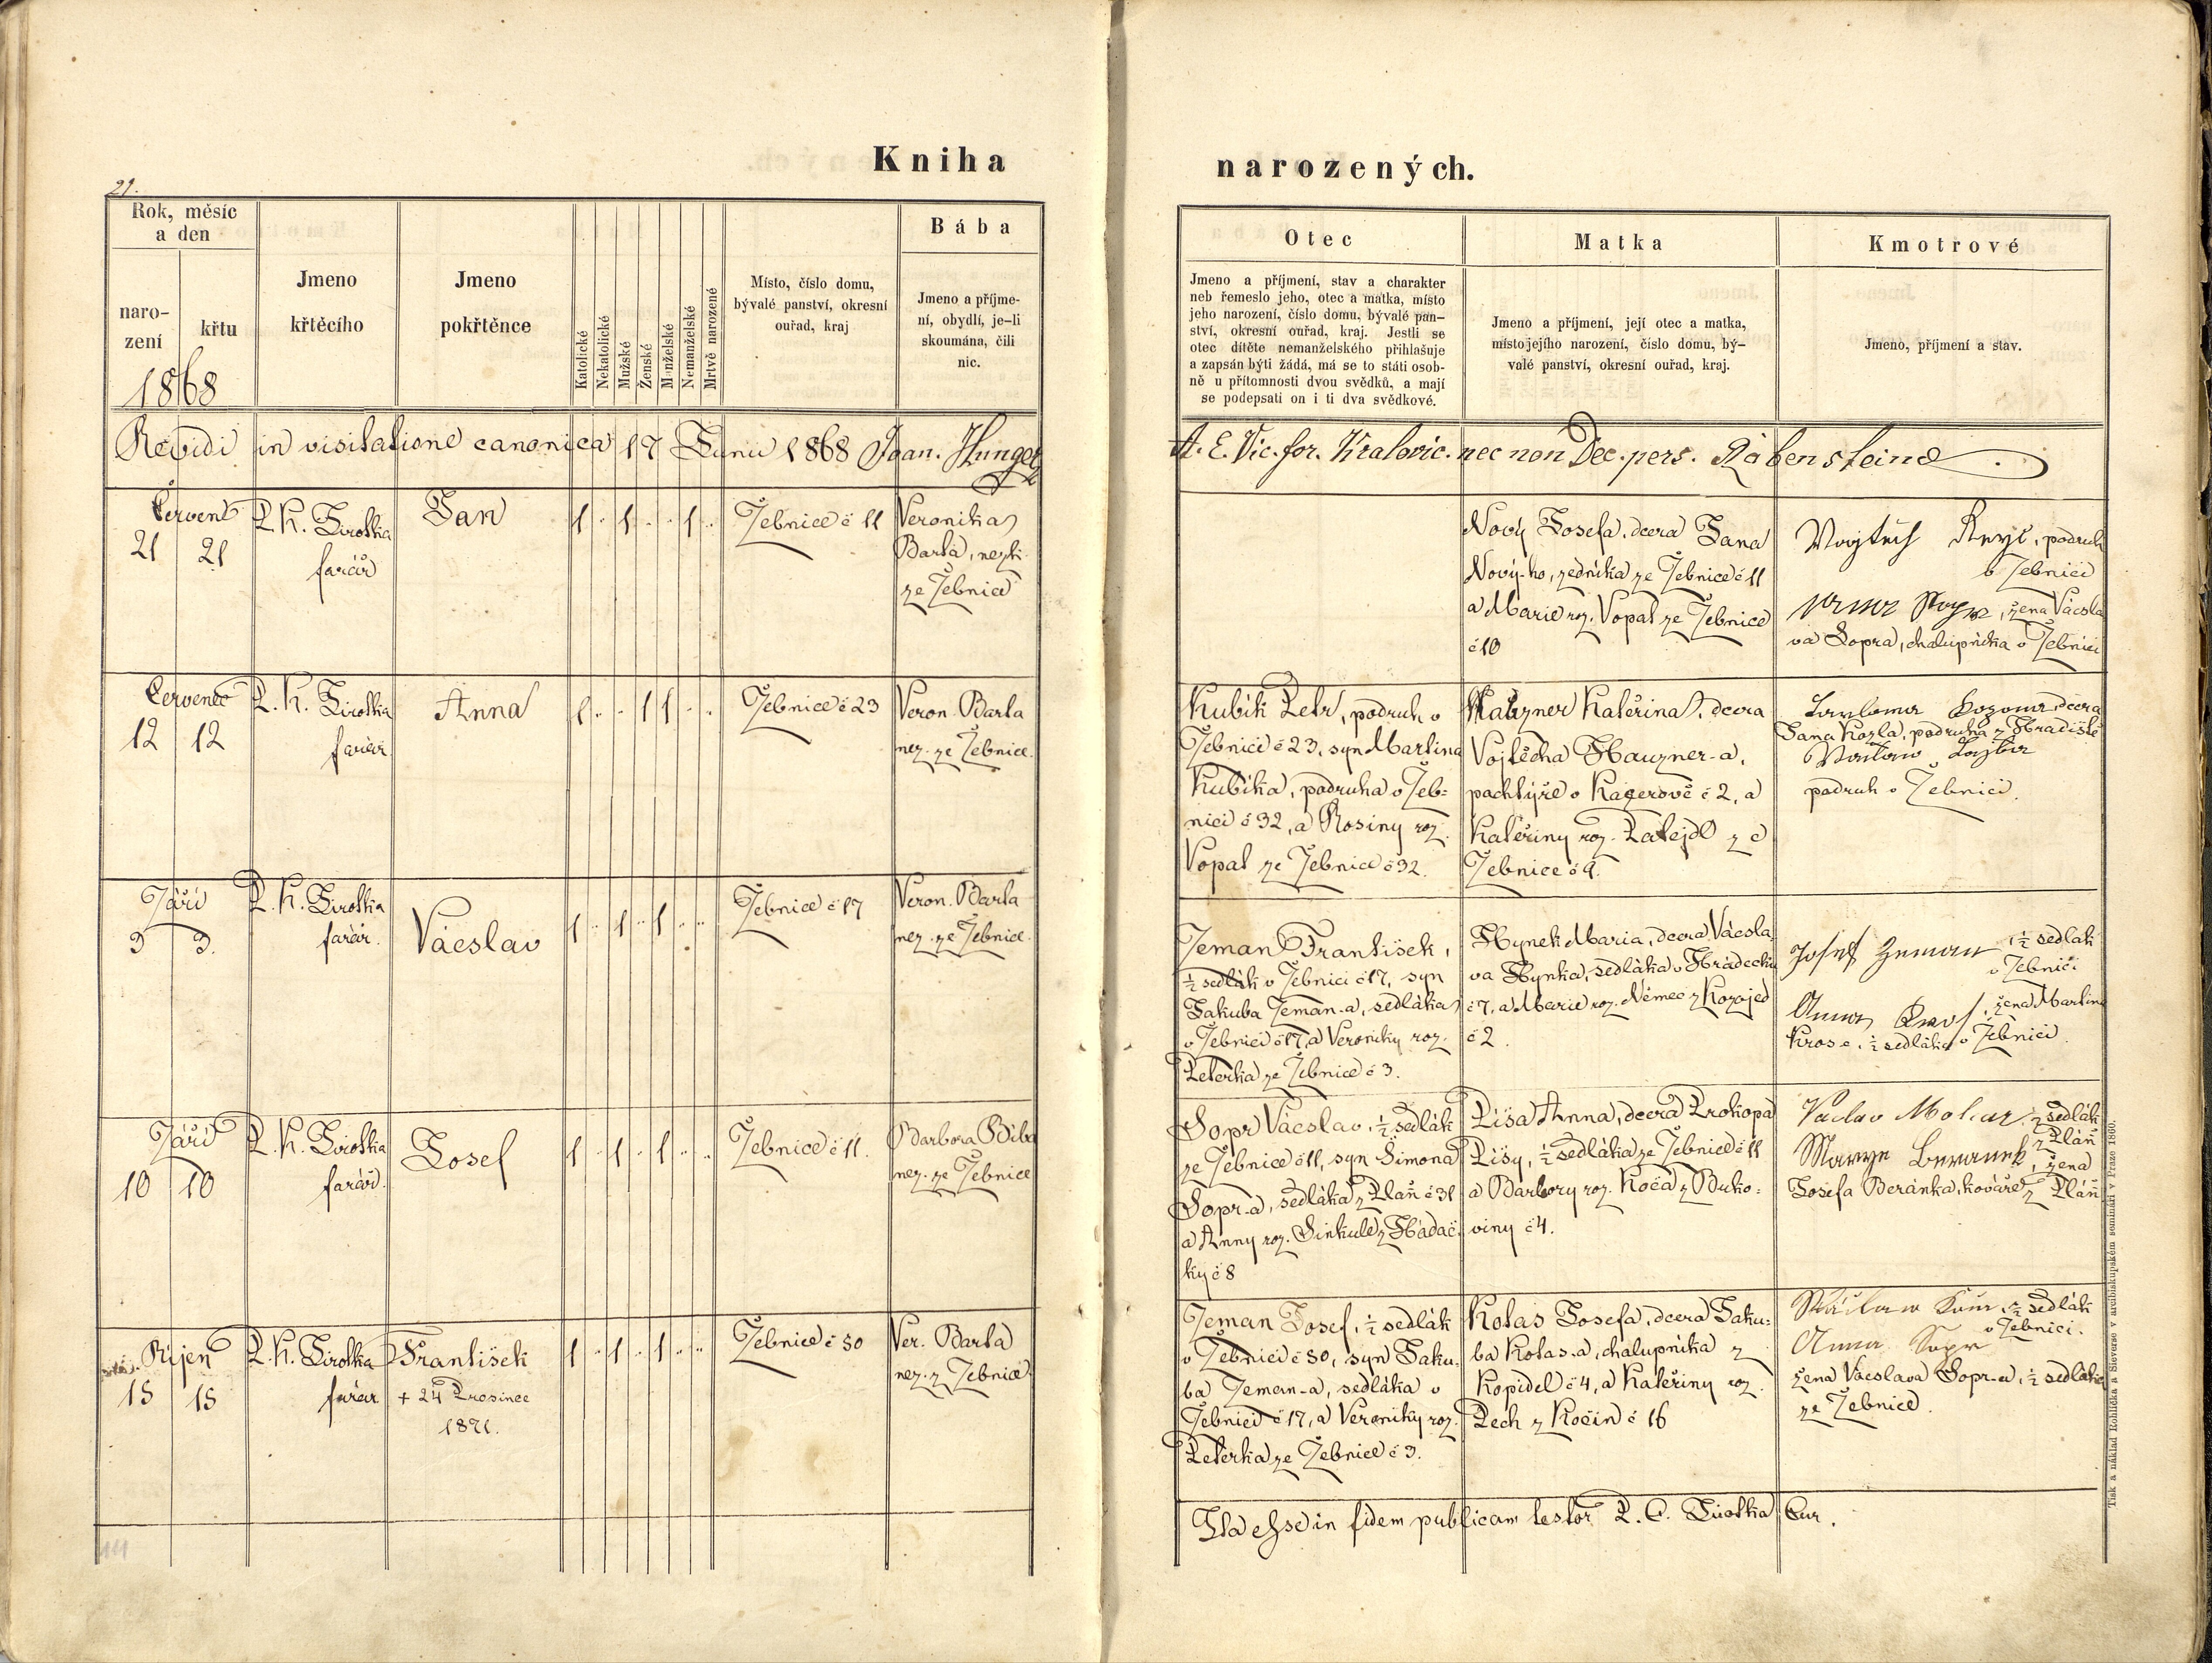 Kniha narozených.
21.
Rok, měsíc
a den
naro-
zení
křtu
1868
Jmeno
křtěcího
Jmeno
pokřtěnce
Katolické
Nekatolické
Mužské
Ženské
Manželské
Nemanželské
Mrtvě narozené
Místo, číslo domu,
bývalé panství, okresní
ouřad, kraj
Bába
Jmeno a příjme-
ní, obydlí, je-li
skoumána, čili
nic.
Otec
Jmeno a příjmení, stav a charakter
neb řemeslo jeho, otec a matka, místo
jeho narození, číslo domu, bývalé pan-
ství, okresní ouřad, kraj. Jestli se
otec dítěte nemanželského přihlašuje
a zapsán býti žádá, má se to státi osob-
ně u přítomnosti dvou svědků, a mají
se podepsati on i ti dva svědkové.
Matka
Jmeno a příjmení, její otec a matka,
místo jejího narození, číslo domu, bý-
valé panství, okresní ouřad, kraj.
Kmotrové
Jmeno, příjmení a stav.
Revidi in visitatione canonica 17 Junii 1868 Joan. Hunger
A. E. Vic. for. Kralovic. nec non Dec. pers. Rabensteine
Červen
21 21
P. K. Sirotka
farář
Jan
1 . 1 . . 1 .
Žebnice č 11
Veronika
Barta, nezk.
ze Žebnice
Nový Josefa, dcera Jana
Nový-ho, zedníka ze Žebnice č 11
a Marie roz. Vopat ze Žebnice
č 10
Vojtěch, podruh
v Žebnici
Anna, žena Václa
va Sopra, chalupníka v Žebnici
Červenec
12 12
P. K. Sirotka
farář
Anna
1 . . 1 1 . .
Žebnice č 23
Veron. Barta
nez. ze Žebnice.
Kubík Petr, podruh v
Žebnici č 23, syn Martina
Kubíka, podruha v Žeb=
nici č 32, a Rosiny roz.
Vopat ze Žebnice č 32.
Hauzner Kateřina, dcera
Vojtěcha Hauzner-a,
pachtýře v Kacerově č 2, a
Kateřiny roz. Zatejdl z e
Žebnice č 9.
dcera
Jana Kozla, podruha z Hradiště
podruh v Žebnici.
Září
3 3.
P. K. Sirotka
farář.
Václav
1 . 1 . 1 . .
Žebnice č 17
Veron. Barta
nez. ze Žebnice.
Zeman František,
½ sedlák v Žebnici č 17, syn
Jakuba Zeman-a, sedláka
v Žebnici č 17, a Veroniky roz.
Peterka ze Žebnice č 3.
Hynek Maria, dcera Václa
va Hynka, sedláka v Hrádečku
č 7, a Marie roz. Němec z Kozojed
č 2.
Josef Zeman, ½ sedlák
v Žebnici
Anna, žena Martina
Krose, ½ sedláka v Žebnici.
Září
10 10
P. K. Sirotka
farář.
Josef
1 . 1 . 1 . .
Žebnice č 11.
Barbora Bíba
nez. ze Žebnice
Sopr Václav, ½ sedlák
ze Žebnice č 11, syn Šimona
Sopr-a, sedláka z Plán č 31
a Anny roz. Sinkule z Hadač=
ky č 8
Písa Anna, dcera Prokopa
Písy, ½ sedláka ze Žebnice č 11
a Barbory roz. Koča z Buko=
viny č 4.
Václav, ½ sedlák
z Plán
Marye Beranek, žena
Josefa Beránka, kováře z Plán
Říjen
15 15
P. K. Sirotka
farář.
František
+ 24 Prosince
1871.
1 . 1 . 1 . .
Žebnice č 30
Ver. Barta
nez. z Žebnice
Zeman Josef, ½ sedlák
v Žebnici č 30, syn Jaku=
ba Zeman-a, sedláka v
Žebnici č 17, a Veroniky roz.
Peterka ze Žebnice č 3.
Kolas Josefa, dcera Jaku=
ba Kolas-a, chalupníka z
Kopidel č 4, a Kateřiny roz.
Pech z Kočin č 16
½ sedlák
v Žebnici.
Anna Sopr
žena Václava Sopr-a, ½ sedláka
ze Žebnice.
Ita esse in fidem publicam testor P. C. Sirotka Cur.
Tisk a náklad Rohlíčka a Sieverse v arcibiskupském semináři v Praze 1860.